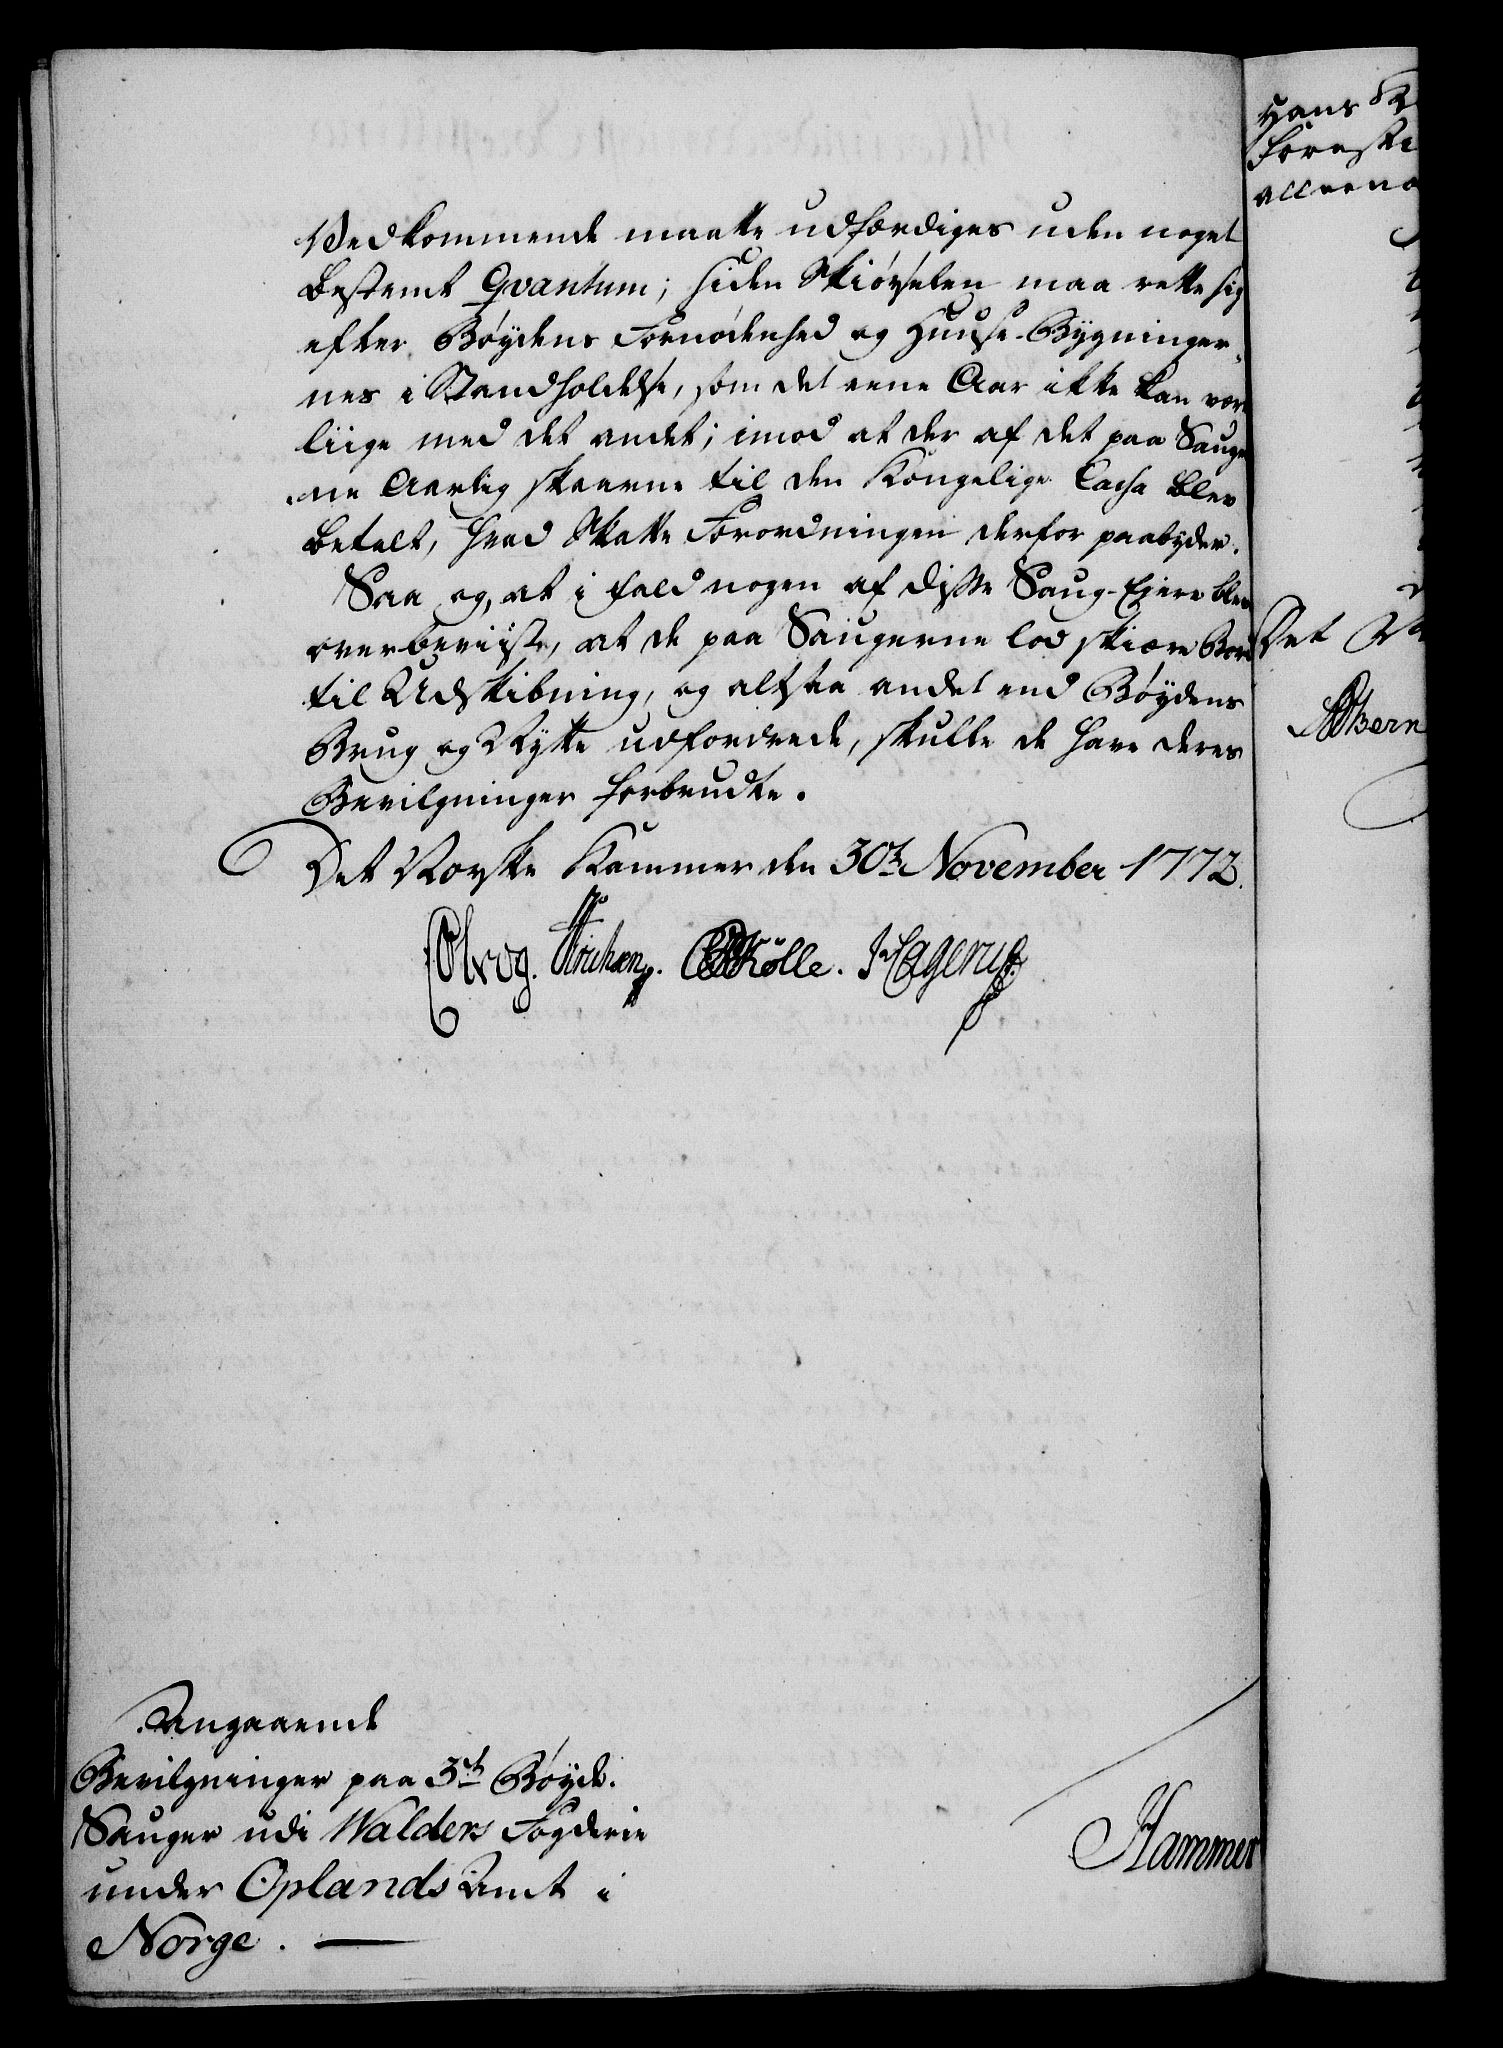 Vedkommende maatte udfærdiges uden noget
bestemt Qvantum; siden Skiørselen maa rette sig
efter Bøydens Fornødenhed og Huuse-Bygninger-
nes i Standholdelse, som det eene Aar ikke kan være
liige med det andet; imod at der af det paa Sauge
ne Aarlig skaarne til den Kongelige Cassa blev
betalt, hvad Skatte Forordningen derfor paabyder.
Saa og, at i fald nogen af disse Saug-Eyere blev
overbeviiste, at de paa Saugerne lod skiære Bord
til Udskibning, og altsaa andet end Bøydens
Brug og Nytte udfordrede, skulle de have deres
Bevilgninger forbrudte.
Det Norske Kammer den 30te November 1772.
Holle. Hagerup.
Angaaende
Bevilgninger paa 3de Bøyde-
Sauger udi Walders Fogderie
under Oplands Amt i
Norge.
Hammer
Hans K
Foreste
alleena
Det N
Bern